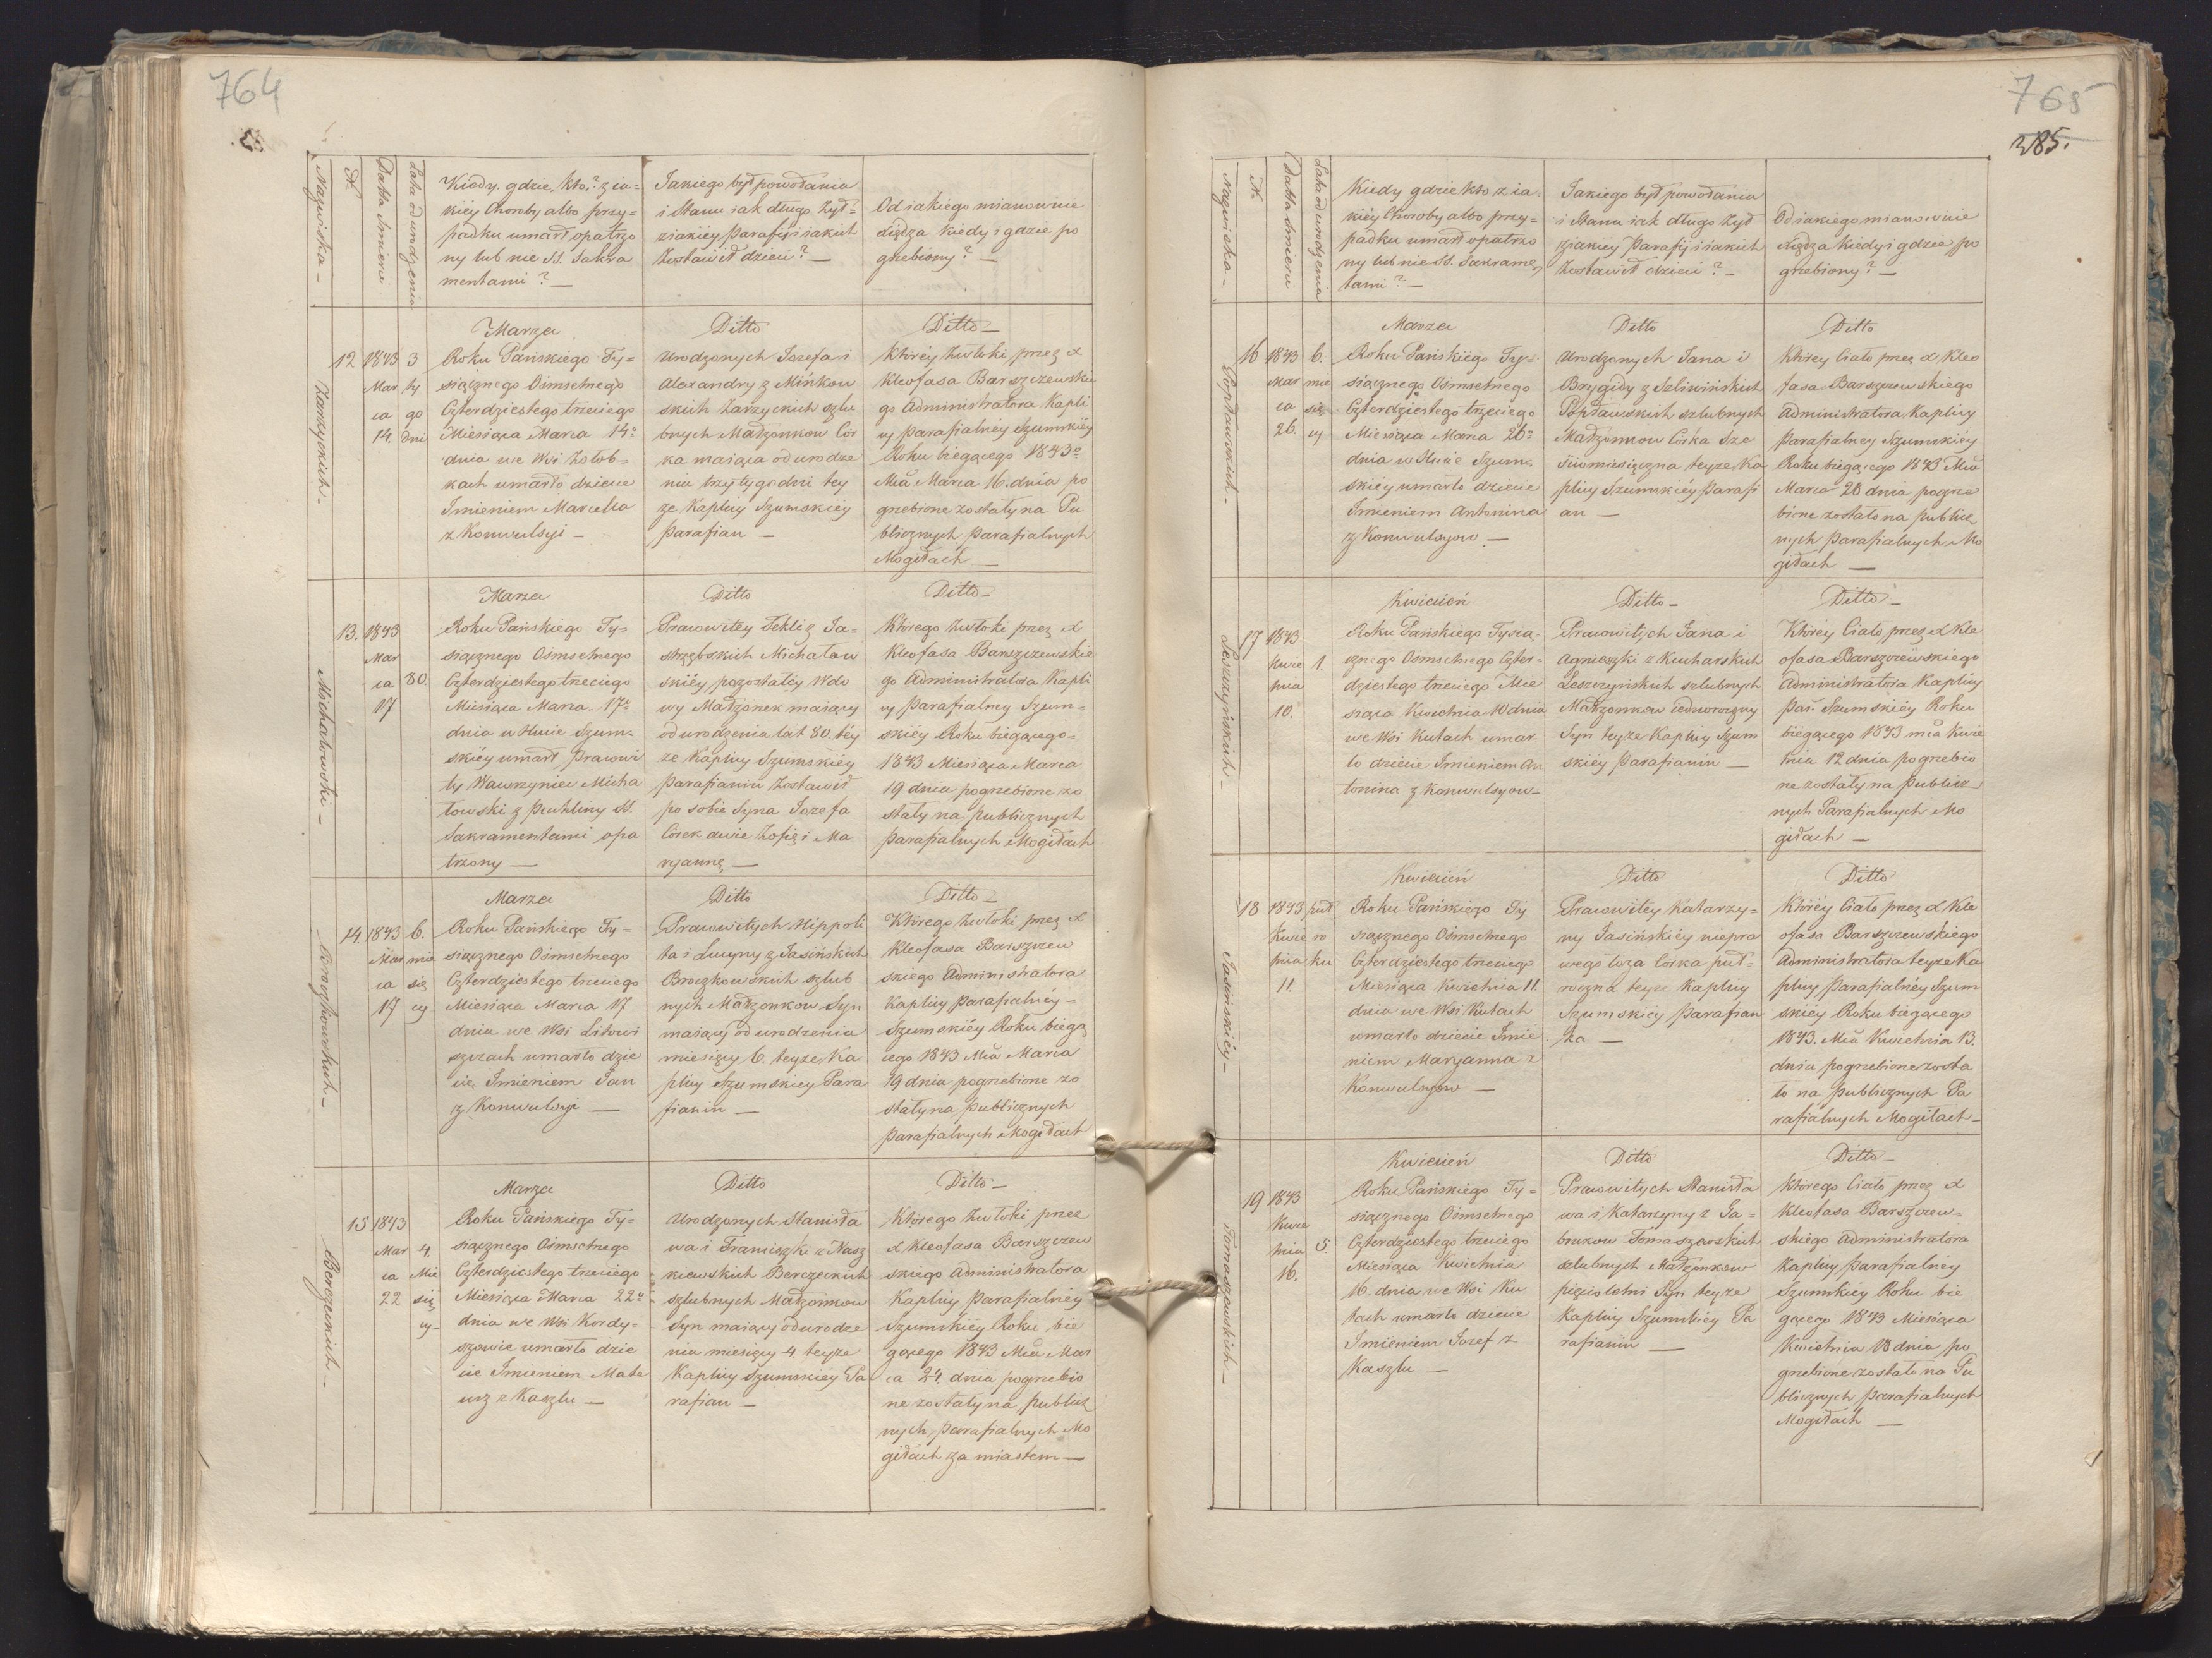 764
Nazwiska –
N.
Data śmierci
Lata od urodzenia
Kiedy, gdzie, kto,? z ia=
kiéy Choroby albo przy=
padku umarł opatrzo
ny lub nie SS. Sakra
mentami? —
Jakiego był powołania
i Stanu iak długo żył=
z iakiéy Parafij i iakich
Zostawił dzieci? —
Od iakiego mianowicie
xiędza kiedy i gdzie po
grzebiony? —
Zarzyckich –
12
1843
Mar
ca
14.
3
ty
go
dni
Marza
Roku Pańskiego Ty=
siącznego Ośmsetnego
Czterdziestego trzeciego
Miesiąca Marca 14º
dnia we Wsi Żołob=
kach umarło dziecie
Imieniem Marcella
z Konwulsyi –
Ditto
Urodzonych Jozefa i
Alexandry z Mińkow
skich Zarzyckich szlu
bnych Małżonkow Cor
ka maiąca od urodze
nia trzy tygodni tey
że Kaplicy Szumskiéy
Parafian –
Ditto –
Któréy Zwłoki przez X
Kleofasa Barszczewskie
go Administratora Kapli
cy Parafialnéy Szumskiéy
Roku biegącego 1843º
Mca Marca 16. dnia po
grzebione zostały na Pu
blicznych Parafialnych
Mogiłach —
Michałowski –
13.
1843
Mar
ca
17
80.
Marza
Roku Pańskiego Ty=
siącznego Ośmsetnego
Czterdziestego trzeciego
Miesiąca Marca 17º
dnia w Hucie Szum=
skiéy umarł Prawowi
ty Wawrzyniec Micha
łowski z Puchliny SS.
Sakramentami opa
trzony —
Ditto
Prawowitey Tekli z Ja=
strzębskich Michałow
skiéy pozostałéy Wdo
wy Małżonek maiący
od urodzenia lat 80. tey
że Kaplicy Szumskiéy
Parafianin Zostawił
po sobie Syna Jozefa
Córek dwie Zofię i Ma
ryannę —
Ditto –
Którego Zwłoki przez X
Kleofasa Barszczewskie
go Administratora Kapli
cy Parafialney Szum=
skiéy Roku biegącego=
1843 Miesiąca Marca
19 dnia pogrzebione zo
stały na Publicznych
Parafialnych Mogiłach
Broczkowskich –
14.
1843
Mar
ca
17
6.
mie
się
cy
Marza
Roku Pańskiego Ty=
siącznego Ośmsetnego
Czterdziestego trzeciego
Miesiąca Marca 17
dnia we Wsi Litowi
szczach umarło dzie
cię Imieniem Jan
z Konwulsyi —
Ditto
Prawowitych Hippoli
ta i Lucyny z Jasińskich
Broczkowskich szlub
nych Małżonkow Syn
maiący od urodzenia
miesięcy 6. teyże Ka
plicy Szumskiey Para
fianin —
Ditto –
Którego Zwłoki przez X
Kleofasa Barszczew
skiego Administratora
Kaplicy Parafialnéy=
Szumskiéy Roku biegą
cego 1843 Mca Marca
19 dnia pogrzebione zo
stały na Publicznych
Parafialnych Mogiłach
Berczeckich –
15
1843
Mar
ca
22
4.
Mie
się
cy –
Marza
Roku Pańskiego Ty=
siącznego Ośmsetnego
Czterdziestego trzeciego
Miesiąca Marca 22º
dnia we Wsi Kordy=
szowie umarło dzie
cie Imieniem Mate
usz z Kaszlu —
Ditto
Urodzonych Stanisła
wa i Franciszki z Nasz
kiewskich Berczeckich
szlubnych Małżonkow
Syn maiący od urodze
nia miesięcy 4 teyże
Kaplicy Szumskiey Pa
rafian —
Ditto –
Którego Zwłoki przez
X Kleofasa Barszczew
skiego Administratora
Kaplicy Parafialnéy
Szumskiéy Roku bie
gącego 1843 Mca Mar
ca 24 dnia pogrzebio
ne zostały na Publicz
nych Parafialnych Mo
giłach za miastem —
765
385.
Nazwiska –
N.
Data śmierci
Lata od urodzenia
Kiedy gdzie kto z ia=
kiéy Choroby albo przy=
padku umarł opatrzo
ny lub nie SS. Sakramen
tami? —
Jakiego był powołania
i Stanu iak długo żył
z iakiey Parafij i iakich
Zostawił dzieci? –
Od iakiego mianowicie
xiędza kiedy i gdzie po
grzebiony? —
Popławskich –
16
1843
Mar
ca
26.
6.
mie
się
cy
Marza
Roku Pańskiego Ty=
siącznego Ośmsetnego
Czterdziestego trzeciego
Miesiąca Marca 26º
dnia w Hucie Szum=
skiéy umarło dziecie
Imieniem Antonina
z Konwulsyow —
Ditto
Urodzonych Jana i
Brygidy z Szliwińskich
Popławskich szlubnych
Małżonkow Córka Sze
ściomiesięczna teyże Ka
plicy Szumskiéy Parafi
an —
Ditto
Któréy Ciało przez X Kleo
fasa Barszczewskiego
Administratora Kaplicy
Parafialney Szumskiéy
Roku biegącego 1843 Mca
Marca 28 dnia pogrze
bione zostało na Publicz
nych Parafialnych Mo
giłach —
Leszczyńskich –
17
1843
Kwie
tnia
10.
1.
Kwiecień
Roku Pańskiego Tysią=
cznego Ośmsetnego Czter=
dziestego trzeciego Mie
siąca Kwietnia 10 dnia
we Wsi Kutach umar=
ło dziecie Imieniem An
tonina z Konwulsyow –
Ditto –
Prawowitych Jana i
Agnieszki z Kucharskich
Leszczyńskich szlubnych
Małżonkow iednoroczny
Syn teyże Kaplicy Szum
skiéy Parafianin —
Ditto –
Któréy Ciało przez X Kle
ofasa Barszczewskiego
Administratora Kaplicy
Par. Szumskiéy Roku
biegącego 1843 mca Kwie
tnia 12 dnia pogrzebio
ne zostały na Publicz
nych Parafialnych Mo
giłach —
Jasińskiéy –
18
1843
Kwie
tnia
11.
puł
ro
ku
Kwiecień
Roku Pańskiego Ty
siącznego Ośmsetnego
Czterdziestego trzeciego
Miesiąca Kwietnia 11.
dnia we Wsi Kutach
umarło dziecie Imie
niem Maryanna z
Konwulsyow —
Ditto
Prawowitey Katarzy=
ny Jasińskiéy niepra
wego łoża Córka puł=
roczna teyże Kaplicy
Szumskiéy Parafian
ka —
Ditto
Któréy Ciało przez X Kle
ofasa Barszczewskiego
Administratora teyże Ka
plicy Parafialnéy Szum
skiéy Roku biegącego
1843. Mca Kwietnia 13.
dnia pogrzebione zosta
ło na Publicznych Pa
rafialnych Mogiłach –
Tomaszewskich –
19
1843
Kwie
tnia
16.
5
Kwiecień
Roku Pańskiego Ty=
siącznego Ośmsetnego
Czterdziestego trzeciego
Miesiąca Kwietnia
16. dnia we Wsi Ku
tach umarło dziecie
Imieniem Jozef z
Kaszlu —
Ditto
Prawowitych Stanisła
wa i Katarzyny z Ja=
brukow Tomaszewskich
szlubnych Małżonkow
pięcioletni Syn teyże
Kaplicy Szumskiéy Pa
rafianin —
Ditto –
Którego Ciało przez X
Kleofasa Barszczew=
skiego Administratora
Kaplicy Parafialnéy
Szumskiéy Roku bie
gącego 1843 Miesiąca
Kwietnia 18 dnia po
grzebione zostało na Pu
blicznych Parafialnych
Mogiłach —